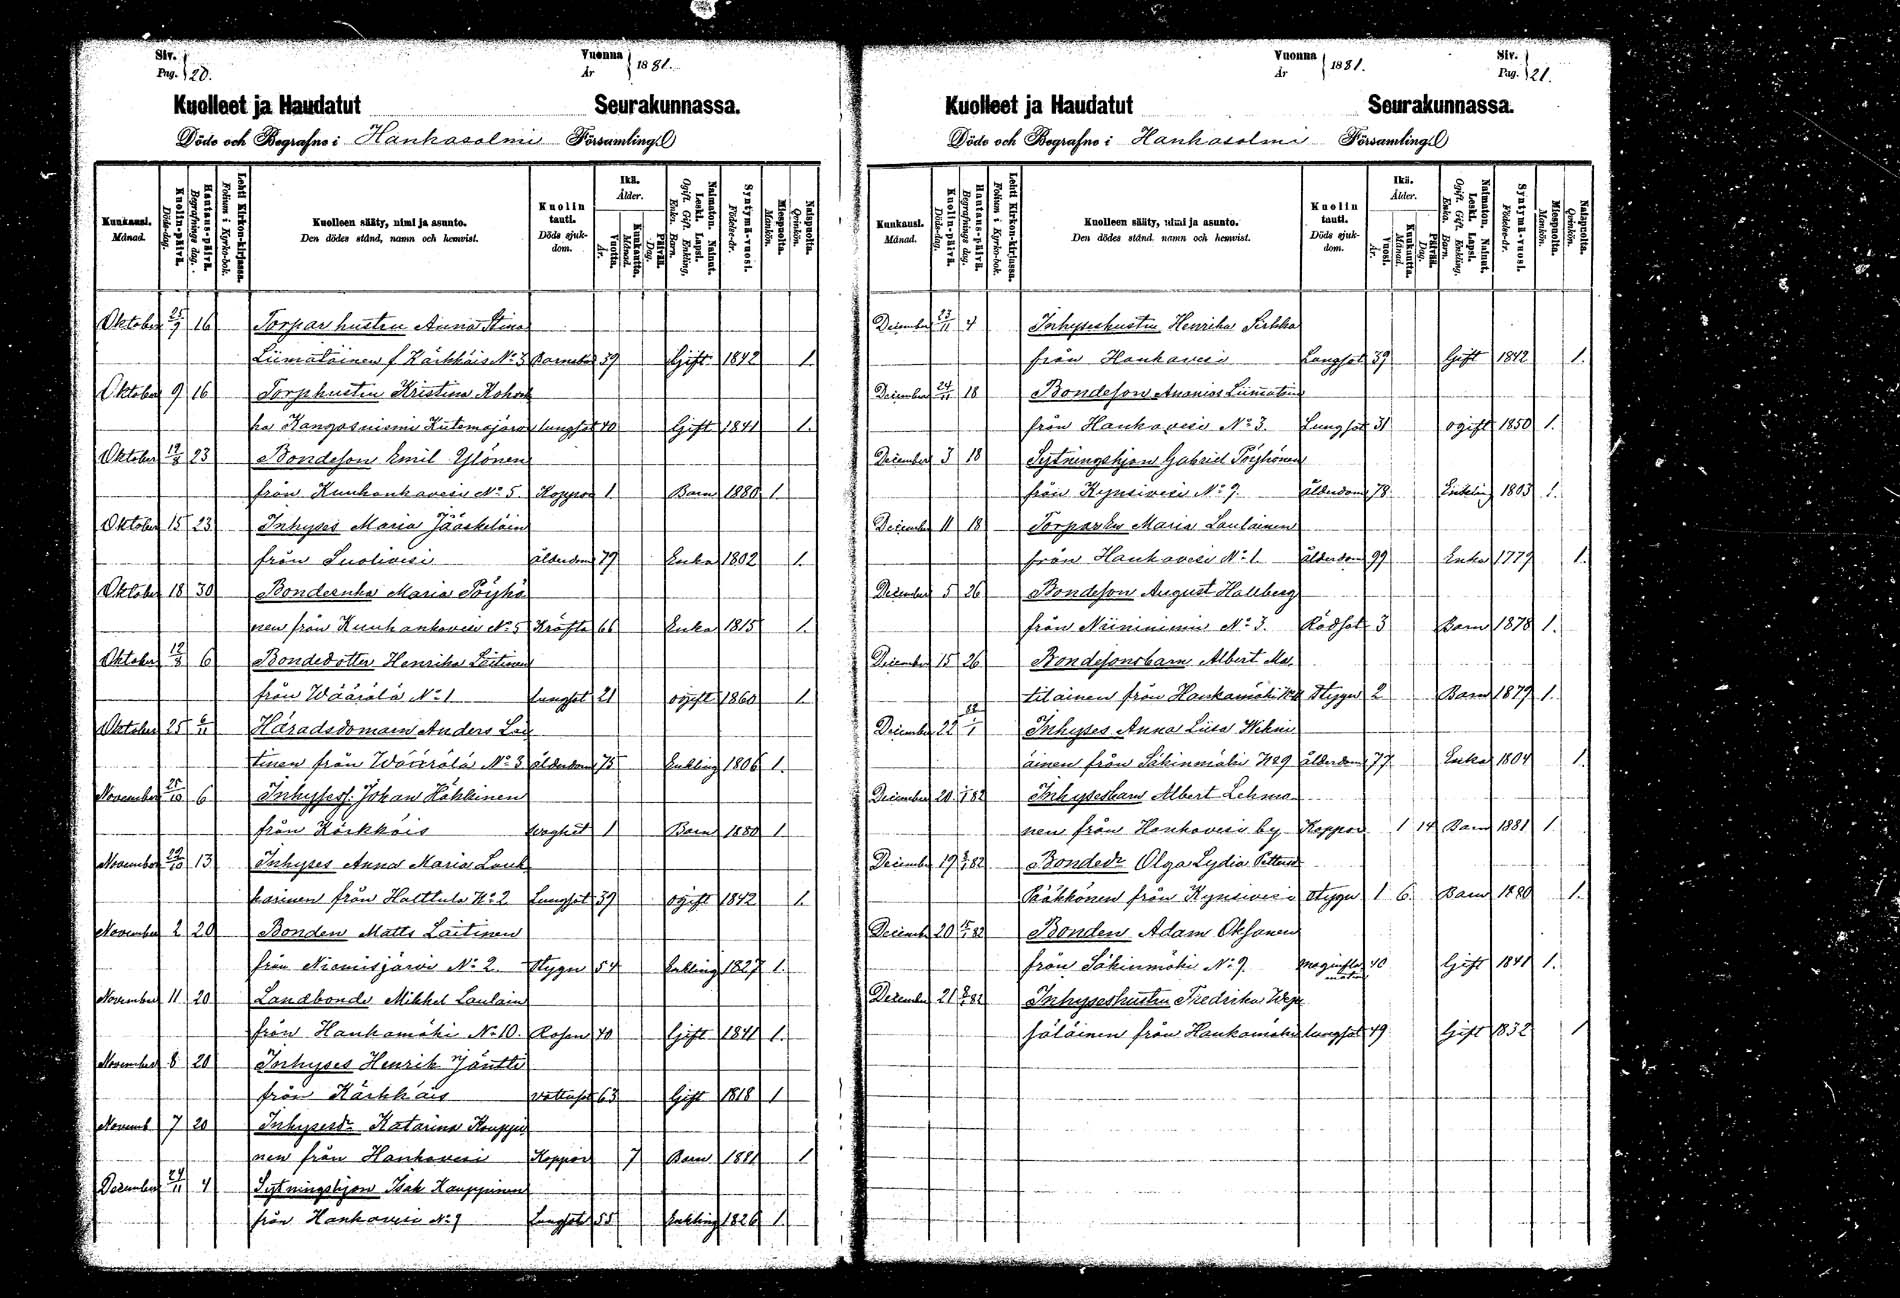 Siv.
Pag. 20.
Vuonna
År
1881.
Kuolleet ja Haudatut Seurakunnassa.
Döde och Begrafne i Hankasalmi Församling
Kuukausi.
Månad.
Kuolin-päivä.
Döds-dag.
Hautaus-päivä.
Begrafnings dag.
Lehti Kirkon-kirjassa.
Folium i Kyrko-bok.
Kuolleen sääty, nimi ja asunto.
Den dödes stånd, namn och hemvist.
Kuolin
tauti.
Döds sjuk-
dom.
Ikä.
Ålder.
Vuotta.
År.
Kuukautta.
Månad.
Päivää.
Dag.
Naimaton. Nainut.
Leski. Lapsi.
Ogift. Gift. Enkling.
Enka. Barn.
Syntymä-vuosi.
Födelse-år.
Miespuolta.
Mankön.
Naispuolta.
Qvinkön.
Oktober 25/9 16 Torparhustru Anna Stina
Liimatainen f Kärkkäis No 3 Barnsbörd 39 Gift 1842 1.
Oktober 9 16 Torphustru Kristina
ka Kangasniemi lungsot 40 Gift 1841 1.
Oktober 19/8 23 Bondeson Emil Ylönen
från Kuuhankavesi No 5. Koppor 1 Barn 1880 1
Oktober 15 23 Inhyses Maria Jääskeläin
från Suolivesi ålderdom 79 Enka 1802 1.
Oktober 18 30 Bondeenka Maria Pöyhö
nen från Kuuhankavesi No 5 Kräfta 66 Enka 1815 1.
Oktober 12/8 6 Bondedotter Henrika Laitinen
från Wäärälä No 1 lungsot 21 ogift 1860 1.
Oktober 25 6/11 Häradsdomaren Anders Lai
tinen från Wäärälä No 3 ålderdom 75 Enkling 1806 1.
November 25/10 6 Inhysess. Johan Häkkinen
från Kärkkäis svaghet 1 Barn 1880 1
November 29/10 13 Inhyses Anna Maria Lauk
karinen från Halttula No 2 Lungsot 39 ogift 1842 1.
November 2 20 Bonden Matts Laitinen
från Niemisjärvi No 2. Stygn 54 Enkling 1827 1.
November 11 20 Landbonde Mikkel Laulain
från Hankamäki No 10. Rosen 40 Gift 1841 1.
November 8 20 Inhyses Henrik Jäntti
från Kärkkäis vattusot 63 Gift 1818 1
Novemb 7 20 Inhysesdr Katarina Kauppi
nen från Hankavesi Koppor 7 Barn 1881 1
December 24/11 4 Sytningshjon Isak Kauppinen
från Hankavesi No 9 Lungsot 55 Enkling 1826 1.
Vuonna
År
1881.
Siv.
Pag. 21.
Kuolleet ja Haudatut Seurakunnassa.
Döde och Begrafne i Hankasalmi Församling
Kuukausi.
Månad.
Kuolin-päivä.
Döds-dag.
Hautaus-päivä.
Begrafnings dag.
Lehti Kirkon-kirjassa.
Folium i Kyrko-bok.
Kuolleen sääty, nimi ja asunto.
Den dödes stånd, namn och hemvist.
Kuolin
tauti.
Döds sjuk-
dom.
Ikä.
Ålder.
Vuosi.
År.
Kuukautta.
Månad.
Päivää.
Dag.
Naimaton. Nainut.
Leski. Lapsi.
Ogift. Gift. Enkling.
Enka. Barn.
Syntymä-vuosi.
Födelse-år.
Miespuolta.
Mankön.
Naispuolta.
Qvinkön.
December 23/11 4 Inhyseshustru Henrika Sirkka
från Hankavesi Lungsot 39 Gift 1842 1.
December 24/11 18 Bondeson Ananias Liimatain
från Hankavesi No 3. Lungsot 31 ogift 1850 1.
December 3 18 Sytningshjon Gabriel Pöyhönen
från Kynsivesi No 9. ålderdom 78 Enkling 1803 1.
December 11 18 Torparenk Maria Laulainen
från Hankavesi No 1. ålderdom 99 Enka 1779 1.
December 5 26 Bondeson August Hallberg
från Niininiemi No 3. Rödsot 3 Barn 1878 1.
December 15 26 Bondesonsbarn Albert Ma
tilainen från Hankamäki Stygn 2 Barn 1879 1.
December 22 82 1/1 Inhyses Anna Liisa Wehni
äinen från Säkinmäki No 9 ålderdom 77 Enka 1804 1.
December 20 1/1 82 Inhysesbarn Albert Lehmo
nen från Hankavesi by Koppor 1 14 Barn 1881 1.
December 19 8/1 82 Bondedr Olga Lydia Pettersd
Pääkkönen från Kynsivesi Stygn 1 6 Barn 1880 1.
Decemb. 20 15/1 82 Bonden Adam Oksanen
från Säkinmäki No 9. maginflam
mation 40 Gift 1841 1.
December 21 8/1 82 Inhyseshustru Fredrika Wep
säläinen från Hankamäki lungsot 49 Gift 1832 1